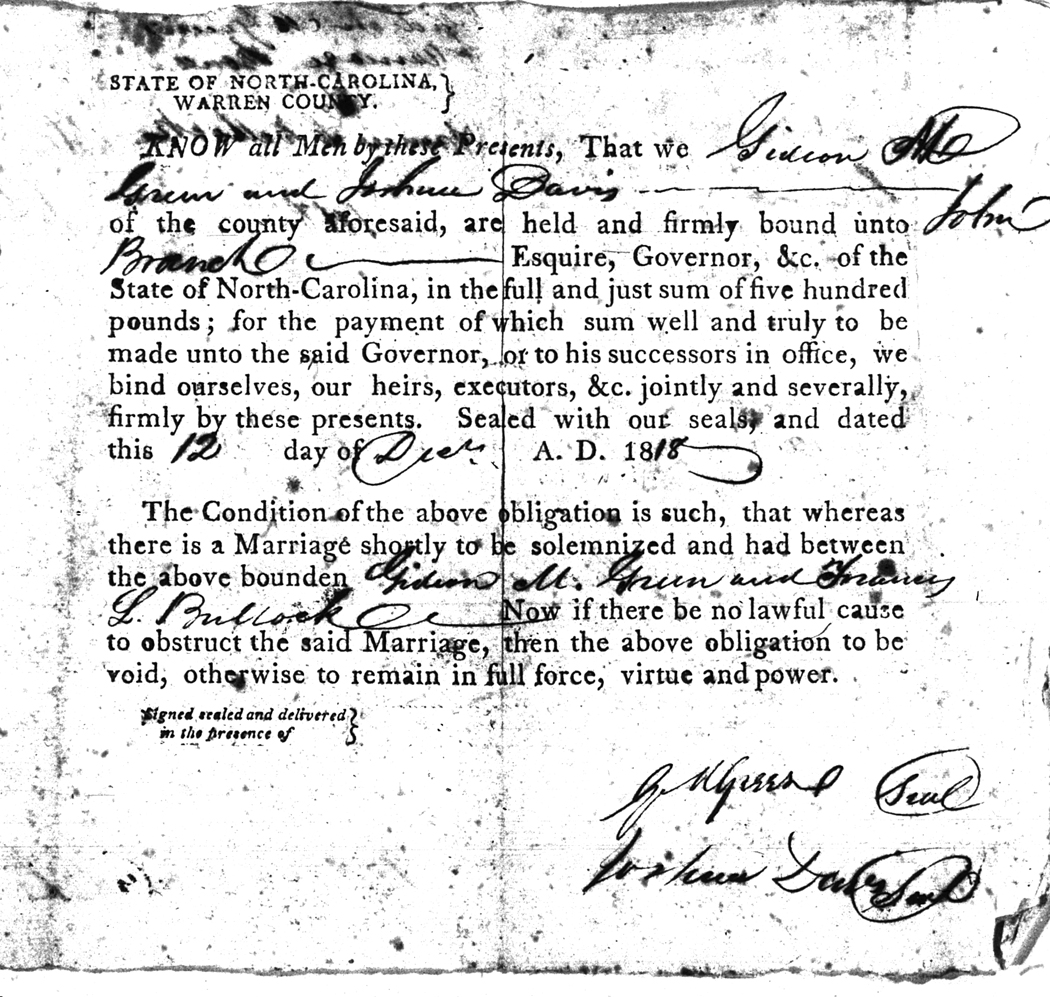 STATE OF NORTH-CAROLINA,
WARREN COUNTY.
KNOW all Men by these Presents, That we Gideon M
Green and Joshua Davis
of the county aforesaid, are held and firmly bound unto John
Branch Esquire, Governor, &c. of the
State of North-Carolina, in the full and just sum of five hundred
pounds; for the payment of which sum well and truly to be
made unto the said Governor, or to his successors in office, we
bind ourselves, our heirs, executors, &c. jointly and severally,
firmly by these presents. Sealed with our seals, and dated
this 12 day of Decr. A. D. 1818
The Condition of the above obligation is such, that whereas
there is a Marriage shortly to be solemnized and had between
the above bounden Gideon M. Green and Francis
L. Bullock Now if there be no lawful cause
to obstruct the said Marriage, then the above obligation to be
void, otherwise to remain in full force, virtue and power.
Signed sealed and delivered
in the presence of
G M Green Seal
Joshua Davis Seal